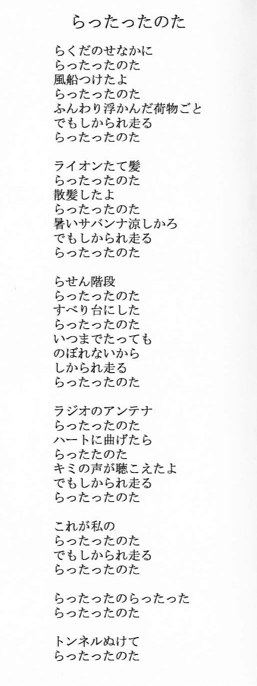 らったったのた
らくだのせなかに
らったったのた
風船つけたよ
らったったのた
ふんわり浮かんだ荷物ごと
でもしかられ走る
らったったのた
ライオンたて髪
らったったのた
散髪したよ
らったったのた
暑いサバンナ涼しかろ
でもしかられ走る
らったったのた
らせん階段
らったったのた
すべり台にした
らったったのた
いつまでたっても
のぼれないから
しかられ走る
らったったのた
ラジオのアンテナ
らったったのた
ハートに曲げたら
らったたのた
キミの声が聴こえたよ
でもしかられ走る
らったったのた
これが私の
らったったのた
でもしかられ走る
らったったのた
らったったのらったった
らったったのた
トンネルぬけて
らったったのた